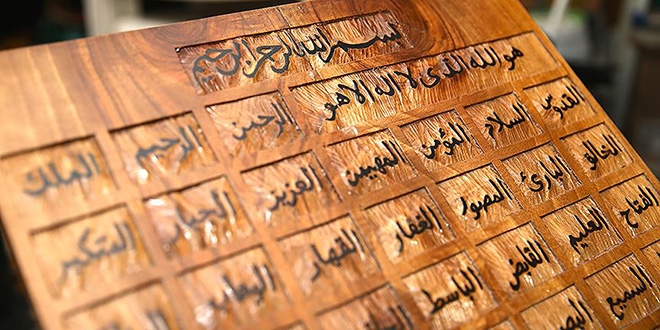 بسم الله الرحمن الرحيم
هو الله الذى لا اله الا هو الرحمن الرحيم الملك
القدوس السلام المؤمن المهيمن العزيز الجبار المتكبر
الخالق البارئ المصور الغفار القهار الوهاب
الفتاح العليم القابض الباسط
السميع